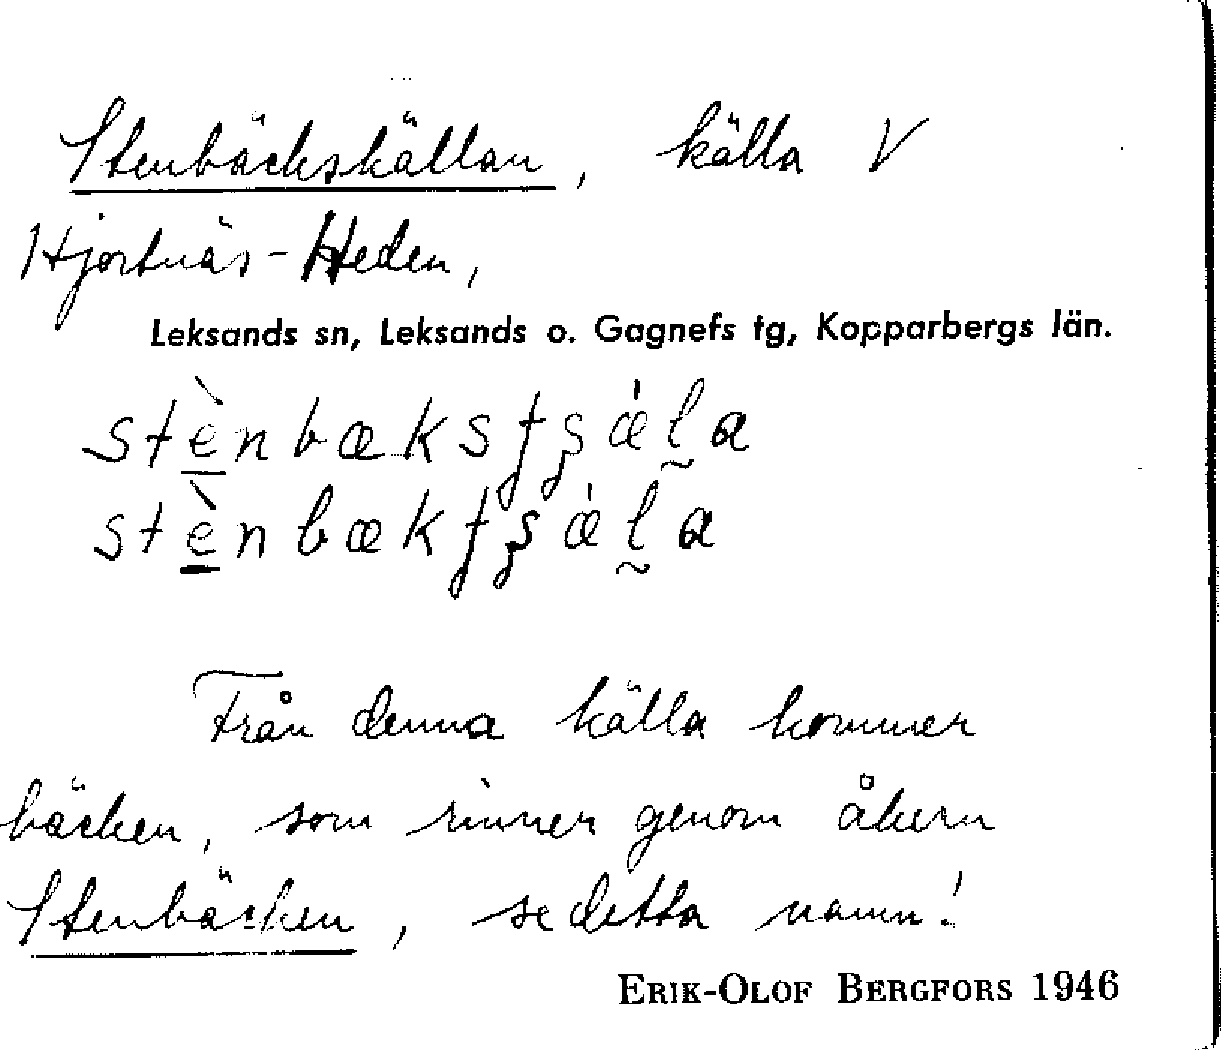 Stenbäckskällan, källa V
Hjortnäs-Heden,
Leksands sn, Leksands o. Gagnefs tg, Kopparbergs län.
stè̠nbækstʂǽl̰a
stè̠nbæktʂǽl̰a
Från denna källa kommer
bäcken, som rinner genom åkern
Stenbäcken, se detta namn!
ERIK-OLOF BERGFORS 1946